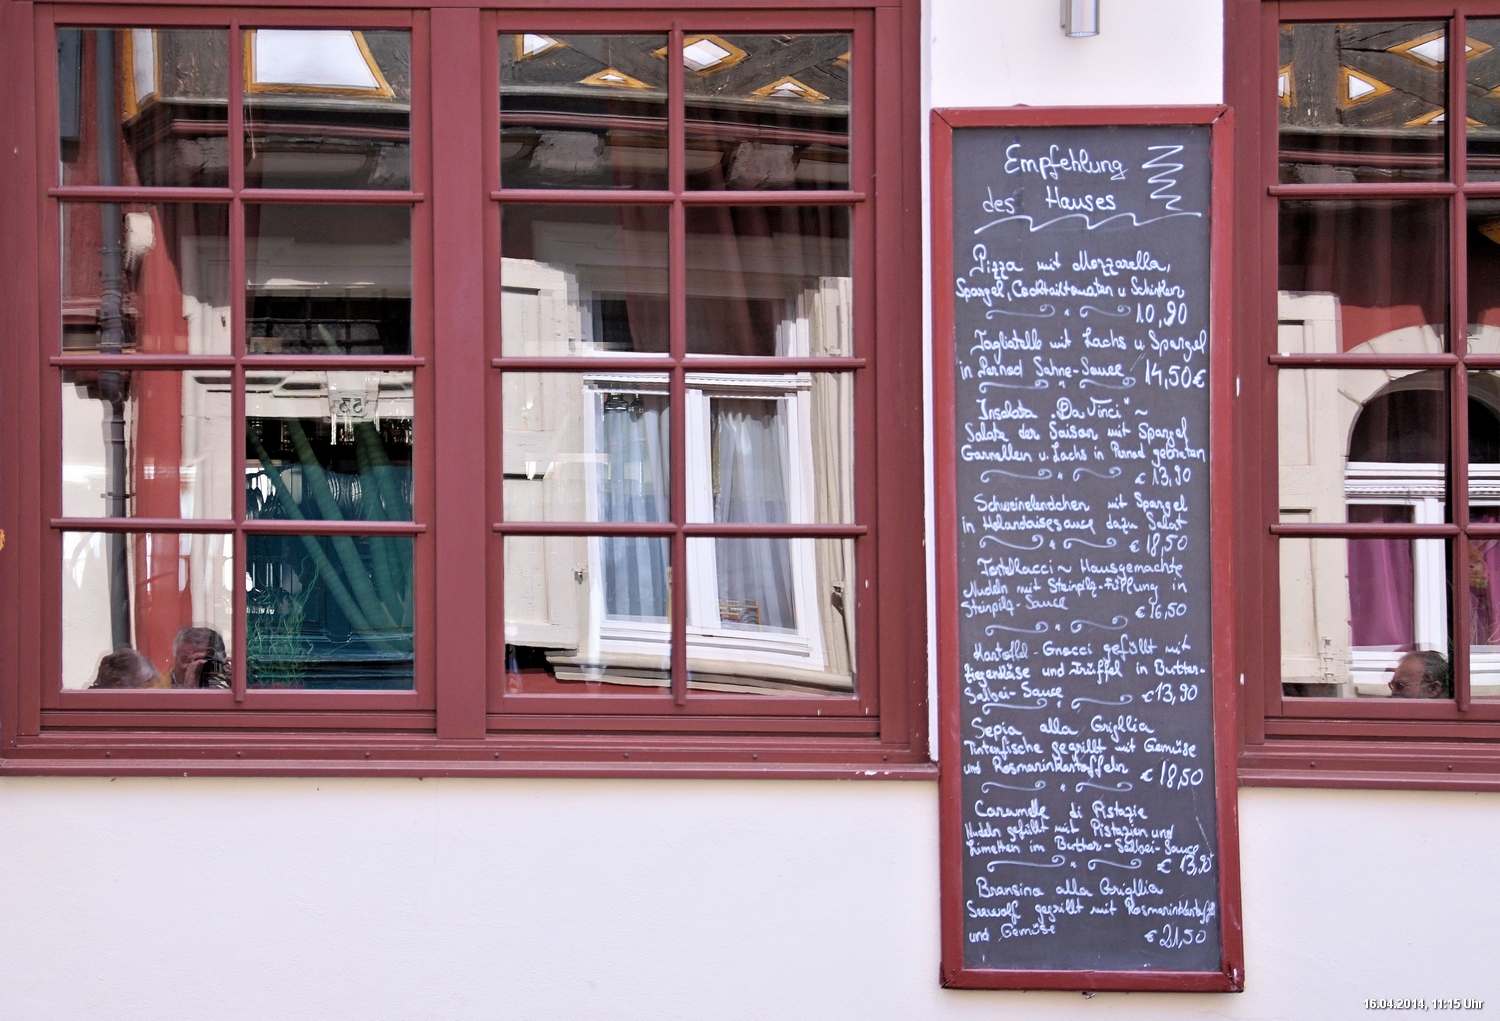 Empfehlung
des Hauses
Pizza mit Mozzarella,
Spargel, Cocktailtomaten u Schinken
10,90
Tagliatelle mit Lachs u Spargel
in Pernod Sahne-Sauce 14,50€
Insalata "Da Vinci" ~
Salate der Saison mit Spargel
Garnellen u. Lachs in Pernod gebraten
€ 13,90
Schweinelendchen mit Spargel
in Holandaisesauce dazu Salat
€ 18,50
Tortellacci ~ Hausgemachte
Nudeln mit Steinpilz-Füllung in
Steinpilz-Sauce € 16,50
Kartoffel-Gnocci gefüllt mit
Ziegenkäse und Trüffel in Butter-
Salbei-Sauce € 13,90
Sepia alla Grigllia
Tintenfische gegrillt mit Gemüse
und Rosmarinkartoffeln € 18,50
Caramelle di Pistazie
Nudeln gefüllt mit Pistazien und
Limetten im Butter-Salbei-Sauce
€ 13,90
Bransino alla Grigllia
Seewolf gegrillt mit Rosmarinkartoffel
und Gemüse € 21,50
53
16.04.2014, 11:15 Uhr